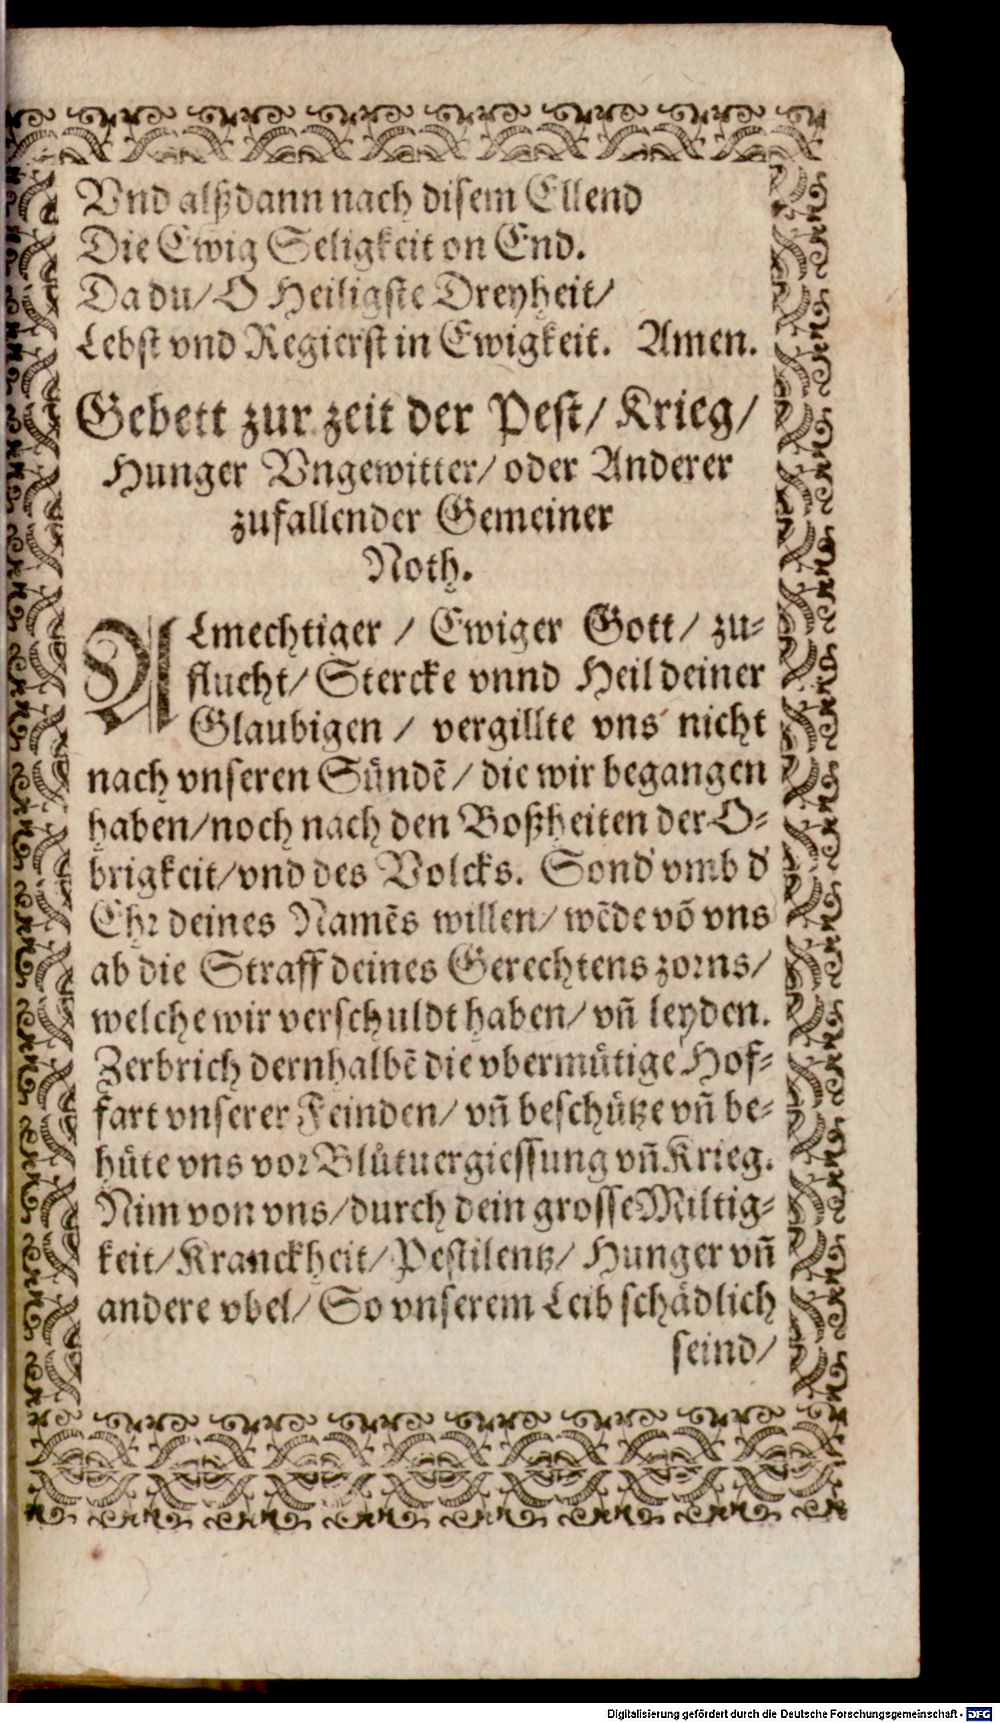 Vnd alßdann nach disem Ellend
Die Ewig Seligkeit on End.
Da du/ O Heiligste Dreyheit/
Lebst vnd Regierst in Ewigkeit. Amen.
Gebett zur zeit der Pest/ Krieg/
Hunger Vngewitter/ oder Anderer
zufallender Gemeiner
Noth.
ALmechtiger / Ewiger Gott/ zu-
flucht/ Stercke vnnd Heil deiner
Glaubigen / vergillte vns nicht
nach vnseren Sündẽ/ die wir begangen
haben/ noch nach den Boßheiten der O-
brigkeit/ vnd des Volcks. Sond' vmb d'
Ehr deines Namẽs willen/ wẽde võ vns
ab die Straff deines Gerechtens zorns/
welche wir verschuldt haben/ vñ leyden.
Zerbrich dernhalbẽ die vbermütige Hof-
fart vnserer Feinden/ vñ beschütze vñ be-
hüte vns vor Blůtuergiessung vñ Krieg.
Nim von vns/ durch dein grosse Miltig-
keit/ Kranckheit/ Pestilentz/ Hunger vñ
andere vbel/ So vnserem Leib schädlich
seind/
Digitalisierung gefördert durch die Deutsche Forschungsgemeinschaft - DFG